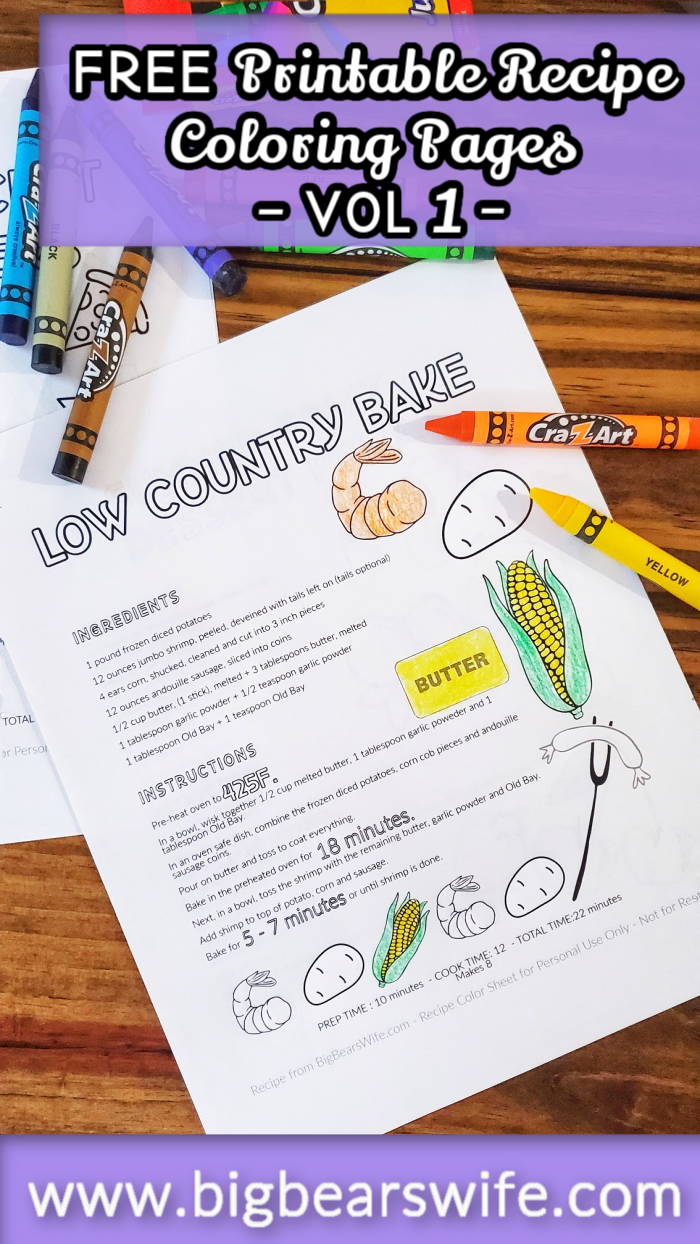 FREE Printable Recipe
Coloring Pages
- VOL 1 -
CraZArt
CraZArt
CraZArt
YELLOW
LOW COUNTRY BAKE
INGREDIENTS
1 pound frozen diced potatoes
12 ounces jumbo shrimp, peeled, deveined with tails left on (tails optional)
4 ears corn, shucked, cleaned and cut into 3 inch pieces
12 ounces andouille sausage, sliced into coins
1/2 cup butter, (1 stick), melted + 3 tablespoons butter, melted
1 tablespoon garlic powder + 1/2 teaspoon garlic powder
1 tablespoon Old Bay + 1 teaspoon Old Bay
BUTTER
INSTRUCTIONS
Pre-heat oven to 425F.
In a bowl, wisk together 1/2 cup melted butter, 1 tablespoon garlic poweder and 1
tablespoon Old Bay.
In an oven safe dish, combine the frozen diced potatoes, corn cob pieces and andouille
sausage coins.
Pour on butter and toss to coat everything.
Bake in the preheated oven for 18 minutes.
Next, in a bowl, toss the shrimp with the remaining butter, garlic powder and Old Bay.
Add shimp to top of potato, corn and sausage.
Bake for 5 - 7 minutes or until shrimp is done.
PREP TIME : 10 minutes - COOK TIME: 12 - TOTAL TIME:22 minutes
Makes 8
Recipe from BigBearsWife.com - Recipe Color Sheet for Personal Use Only - Not for
TOTAL
www.bigbearswife.com